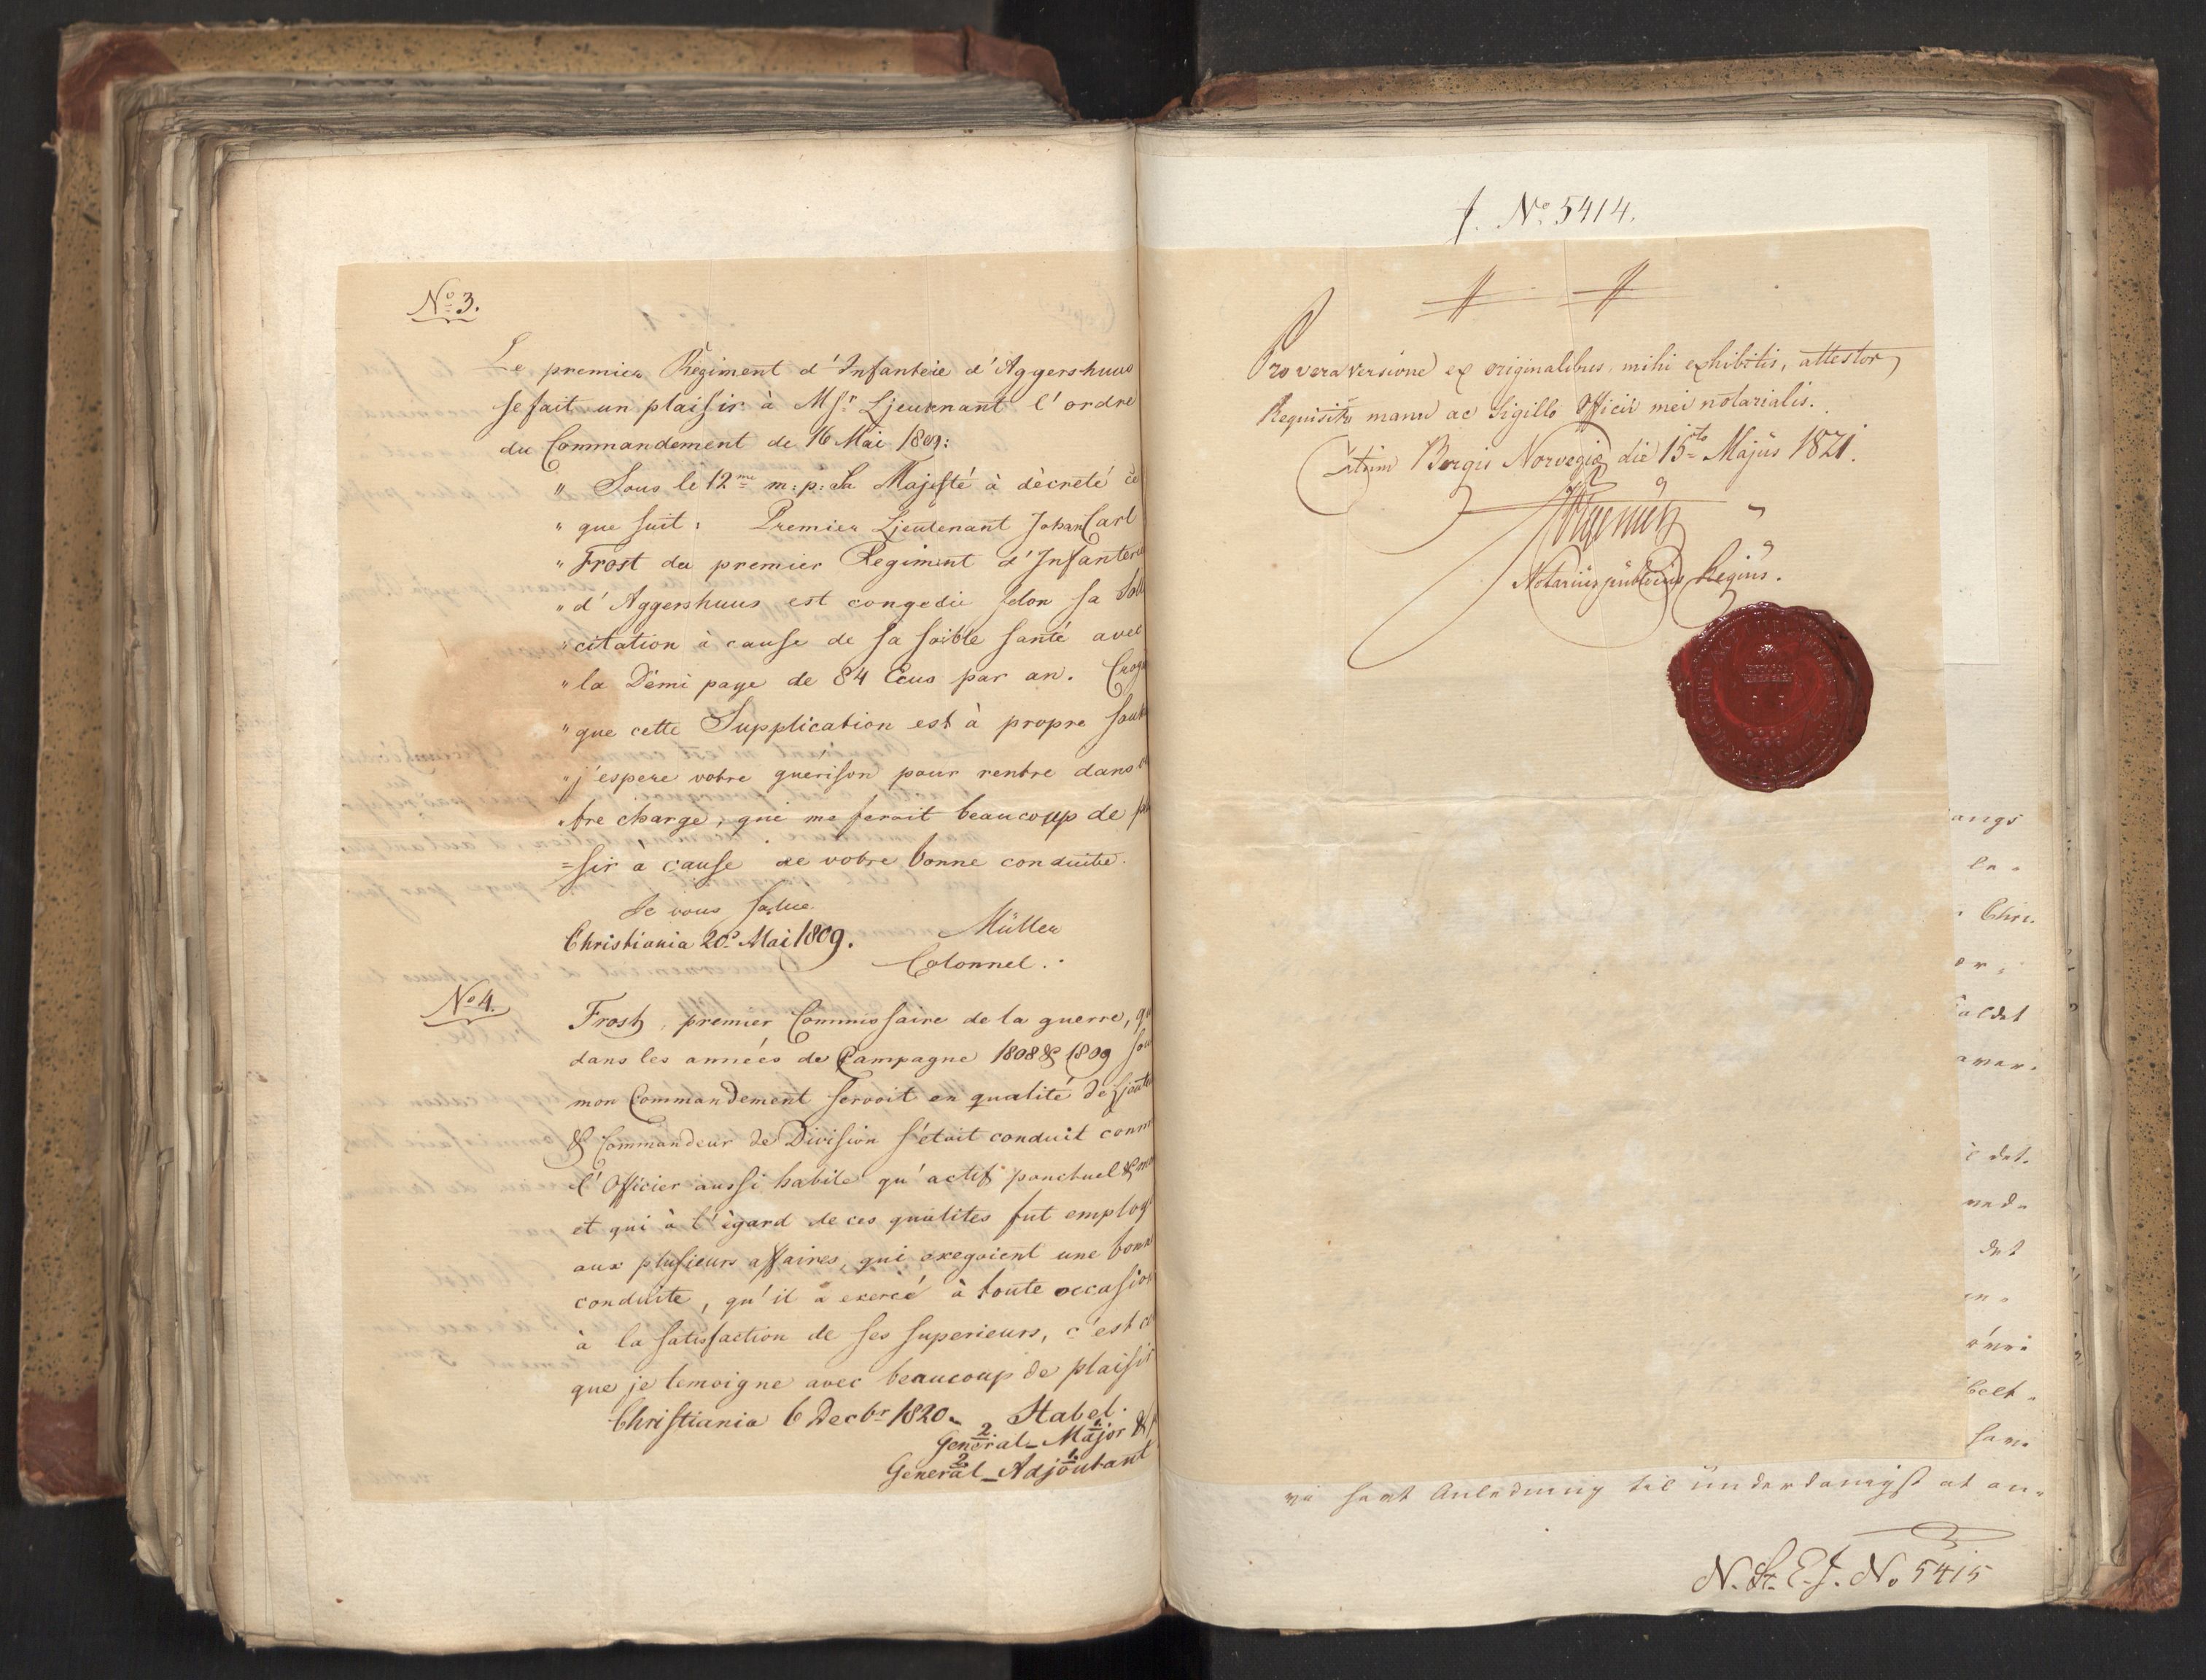 No 3.
Le premier Regiment d'Infanteie d'Aggershuus
se fait un plaisir à Msr Ljeutnant l'ordre
du Commandement de 16 Mai 1809:
" Sous le 12me m: p: Sa Majesté à dècreté ce
" que suit: Premier Ljeutenant Johan Carl
" Frost du premier Regiment d'Infanterie
" d'Aggershuus est congedie selon sa Solli
" citation à cause de sa foible santé avec
" la Démi paye de 84 Ecus par an.
" que cette Supplication est à propre
" j'espere votre guérison pour rentre dans
" tre charge, qui me feroit beaucoup de
=sir a cause de votre bonne conduite.
Je vous salue
Christiania 20de Mai 1809. Müller
Colonnel.
No 4.
Frost, premier Commissaire de la guerre,
dans les années de Campagne 1808 & 1809
mon Commandement servoit en qualité de
& Commandeur de Division s'etoit conduit
l'Officier aussi habile qu'actif ponctuel &
et qui à l'ègard de ces qualites fut
aux plusieurs affaires, qui exegoient une
conduite, qu'il a exercé à toute occasion
à la satisfaction de ses superieurs, c'est
que je temoigne avec beaucoup de plaisir
Christiania 6 Decbr 1820. Stabel.
2 1.
General-Major &
2 1.
General-Adjoutant
f. No 5414.
Pro vera versione ex originalibus, mihi exhibitis, attestor,
Requisitu manu ac Sigillo Officii mei notarialis.
Bergis Norvegiæ die 15to Majus 1821.
Notarius publicus Regius.
angs
le-
Chri-
er,
aver.
det.
ved-
det
en-
sam-
vi havt Anledning til underdanigst at an-
N. St. E. J. No 5415